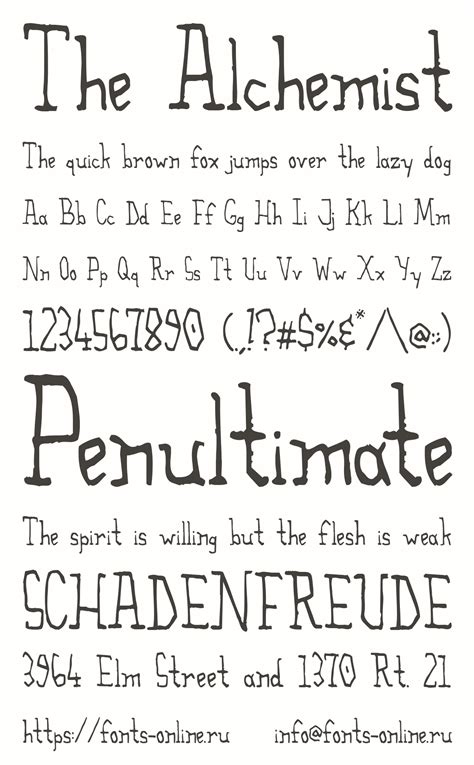 The Alchemist
The quick brown fox jumps over the lazy dog
Aa Bb Cc Dd Ee Ff Gg Hh Ii Jj Kk Ll Mm
Nn Oo Pp Qq Rr Ss Tt Uu Vv Ww Xx Yy Zz
1234567890 (.,!?#$%&*/\@:;)
Penultimate
The spirit is willing but the flesh is weak
SCHADENFREUDE
3964 Elm Street and 1370 Rt. 21
https://fonts-online.ru info@fonts-online.ru